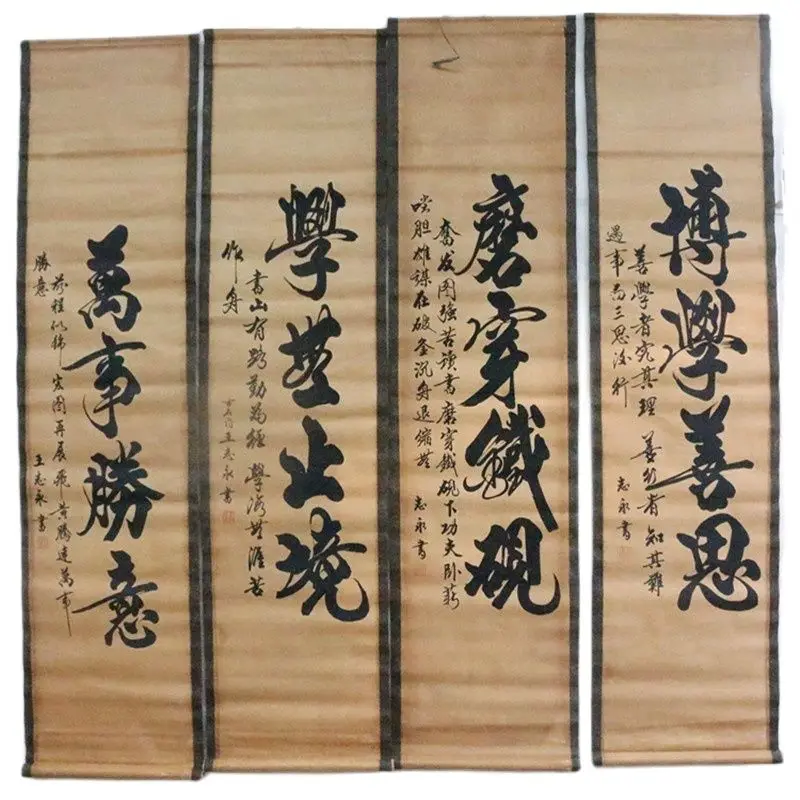 博學善思
善學者究其理 善行者知其難
遇事三思後行
志永書
磨穿鐵硯
奮发图強苦读書磨穿鉄硯下功夫卧薪
嚐胆雄謀在破釜沉舟退缩無
志永書
學無止境
書山有路勤為徑 學海無涯苦
作舟
王志永書
萬事勝意
前程似锦 宏图再展 飛黄腾達萬事
勝意
王志永書